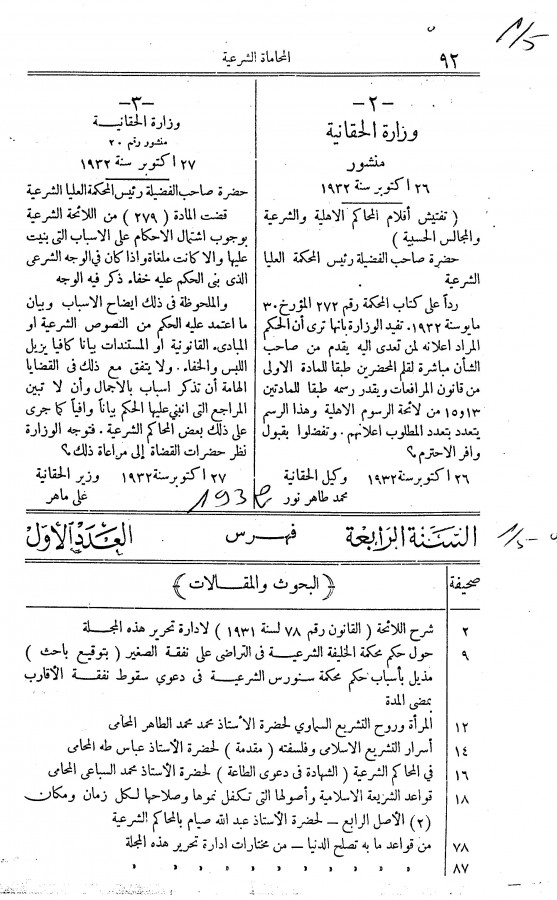 ٩٢
المحاماة الشرعية
—٢—
وزارة الحقانية
منشور
٢٦ اكتوبر سنة ١٩٣٢
( تفتيش أقلام المحاكم الاهلية والشرعية
والمجالس الحسبية )
حضرة صاحب الفضيلة رئيس المحكمة العليا
الشرعية
رداً على كتاب المحكمة رقم ٢٧٢ المؤرخ ٣٠
مايو سنة ١٩٣٢. تفيد الوزارة بانها ترى أن الحكم
المراد اعلانه لمن تعدى اليه يقدم من صاحب
الشأن مباشرة لقلم المحضرين طبقا للمادة الاولى
من قانون المرافعات ويقدر رسمه طبقا للمادتين
١٣ و١٥ من لائحة الرسوم الاهلية وهذا الرسم
يتعدد بتعدد المطلوب اعلانهم . وتفضلوا بقبول
وافر الاحترم ؟
٢٦ اكتوبر سنة ١٩٣٢ وكيل الحقانية
محمد طاهر نور
—٣—
وزارة الحقانية
منشور رقم ٢٠
٢٧ اكتوبر سنة ١٩٣٢
حضرة صاحب الفضيلة رئيس المحكمة العليا الشرعية
قضت المادة ( ٢٧٩ ) من اللائحة الشرعية
بوجوب اشتمال الاحكام على الاسباب التى بنيت
عليها والا كانت ملغاة واذا كان فى الوجه الشرعى
الذى بنى الحكم عليه خفاء ذكر فيه الوجه
والملحوظة فى ذلك ايضاح الاسباب وبيان
ما اعتمد عليه الحكم من النصوص الشرعية او
المبادىء القانونية او المستندات بيانا كافيا يزيل
اللبس والخفاء . ولا يتفق مع ذلك فى القضايا
الهامة أن تذكر اسباب بالاجمال وأن لا تبين
المراجع التى انبنى عليها الحكم بياناً وافياً كما جرى
على ذلك بعض المحاكم الشرعية . فتوجه الوزارة
نظر حضرات القضاة إلى مراعاة ذلك ؟
٢٧ اكتوبر سنة ١٩٣٢ وزير الحقانية
على ماهر
السنة الرابعة فهرس العدد الأول
صحيفة
﴿ البحوث والمقالات ﴾
٢ شرح اللائحة ( القانون رقم ٧٨ لسنة ١٩٣١ ) لادارة تحرير هذه المجلة
٩ حول حكم محكمة الخليفة الشرعية فى التراضى على نفقة الصغير ( بتوقيع باحث )
مذيل بأسباب حكم محكمة سنورس الشرعية فى دعوي سقوط نفقة الأقارب
بمضى المدة
١٢ المرأة وروح التشريع السماوي لحضرة الأستاذ محمد محمد الطاهر المحامى
١٤ أسرار التشريع الاسلامى وفلسفته ( مقدمة ) لحضرة الأستاذ عباس طه المحامى
١٦ فى المحاكم الشرعية ( الشهادة فى دعوى الطاعة ) لحضرة الأستاذ محمد السباعى المحامى
١٨ قواعد الشريعة الاسلامية وأصولها التى تتكفل نموها وصلاحها لكل زمان ومكان
(٢) الأصل الرابع — لحضرة الأستاذ عبد الله صيام بالمحاكم الشرعية
٧٨ من قواعد ما به تصلح الدنيا — من مختارات ادارة تحرير هذه المجلة
٨٧ » » » » » » » » » »